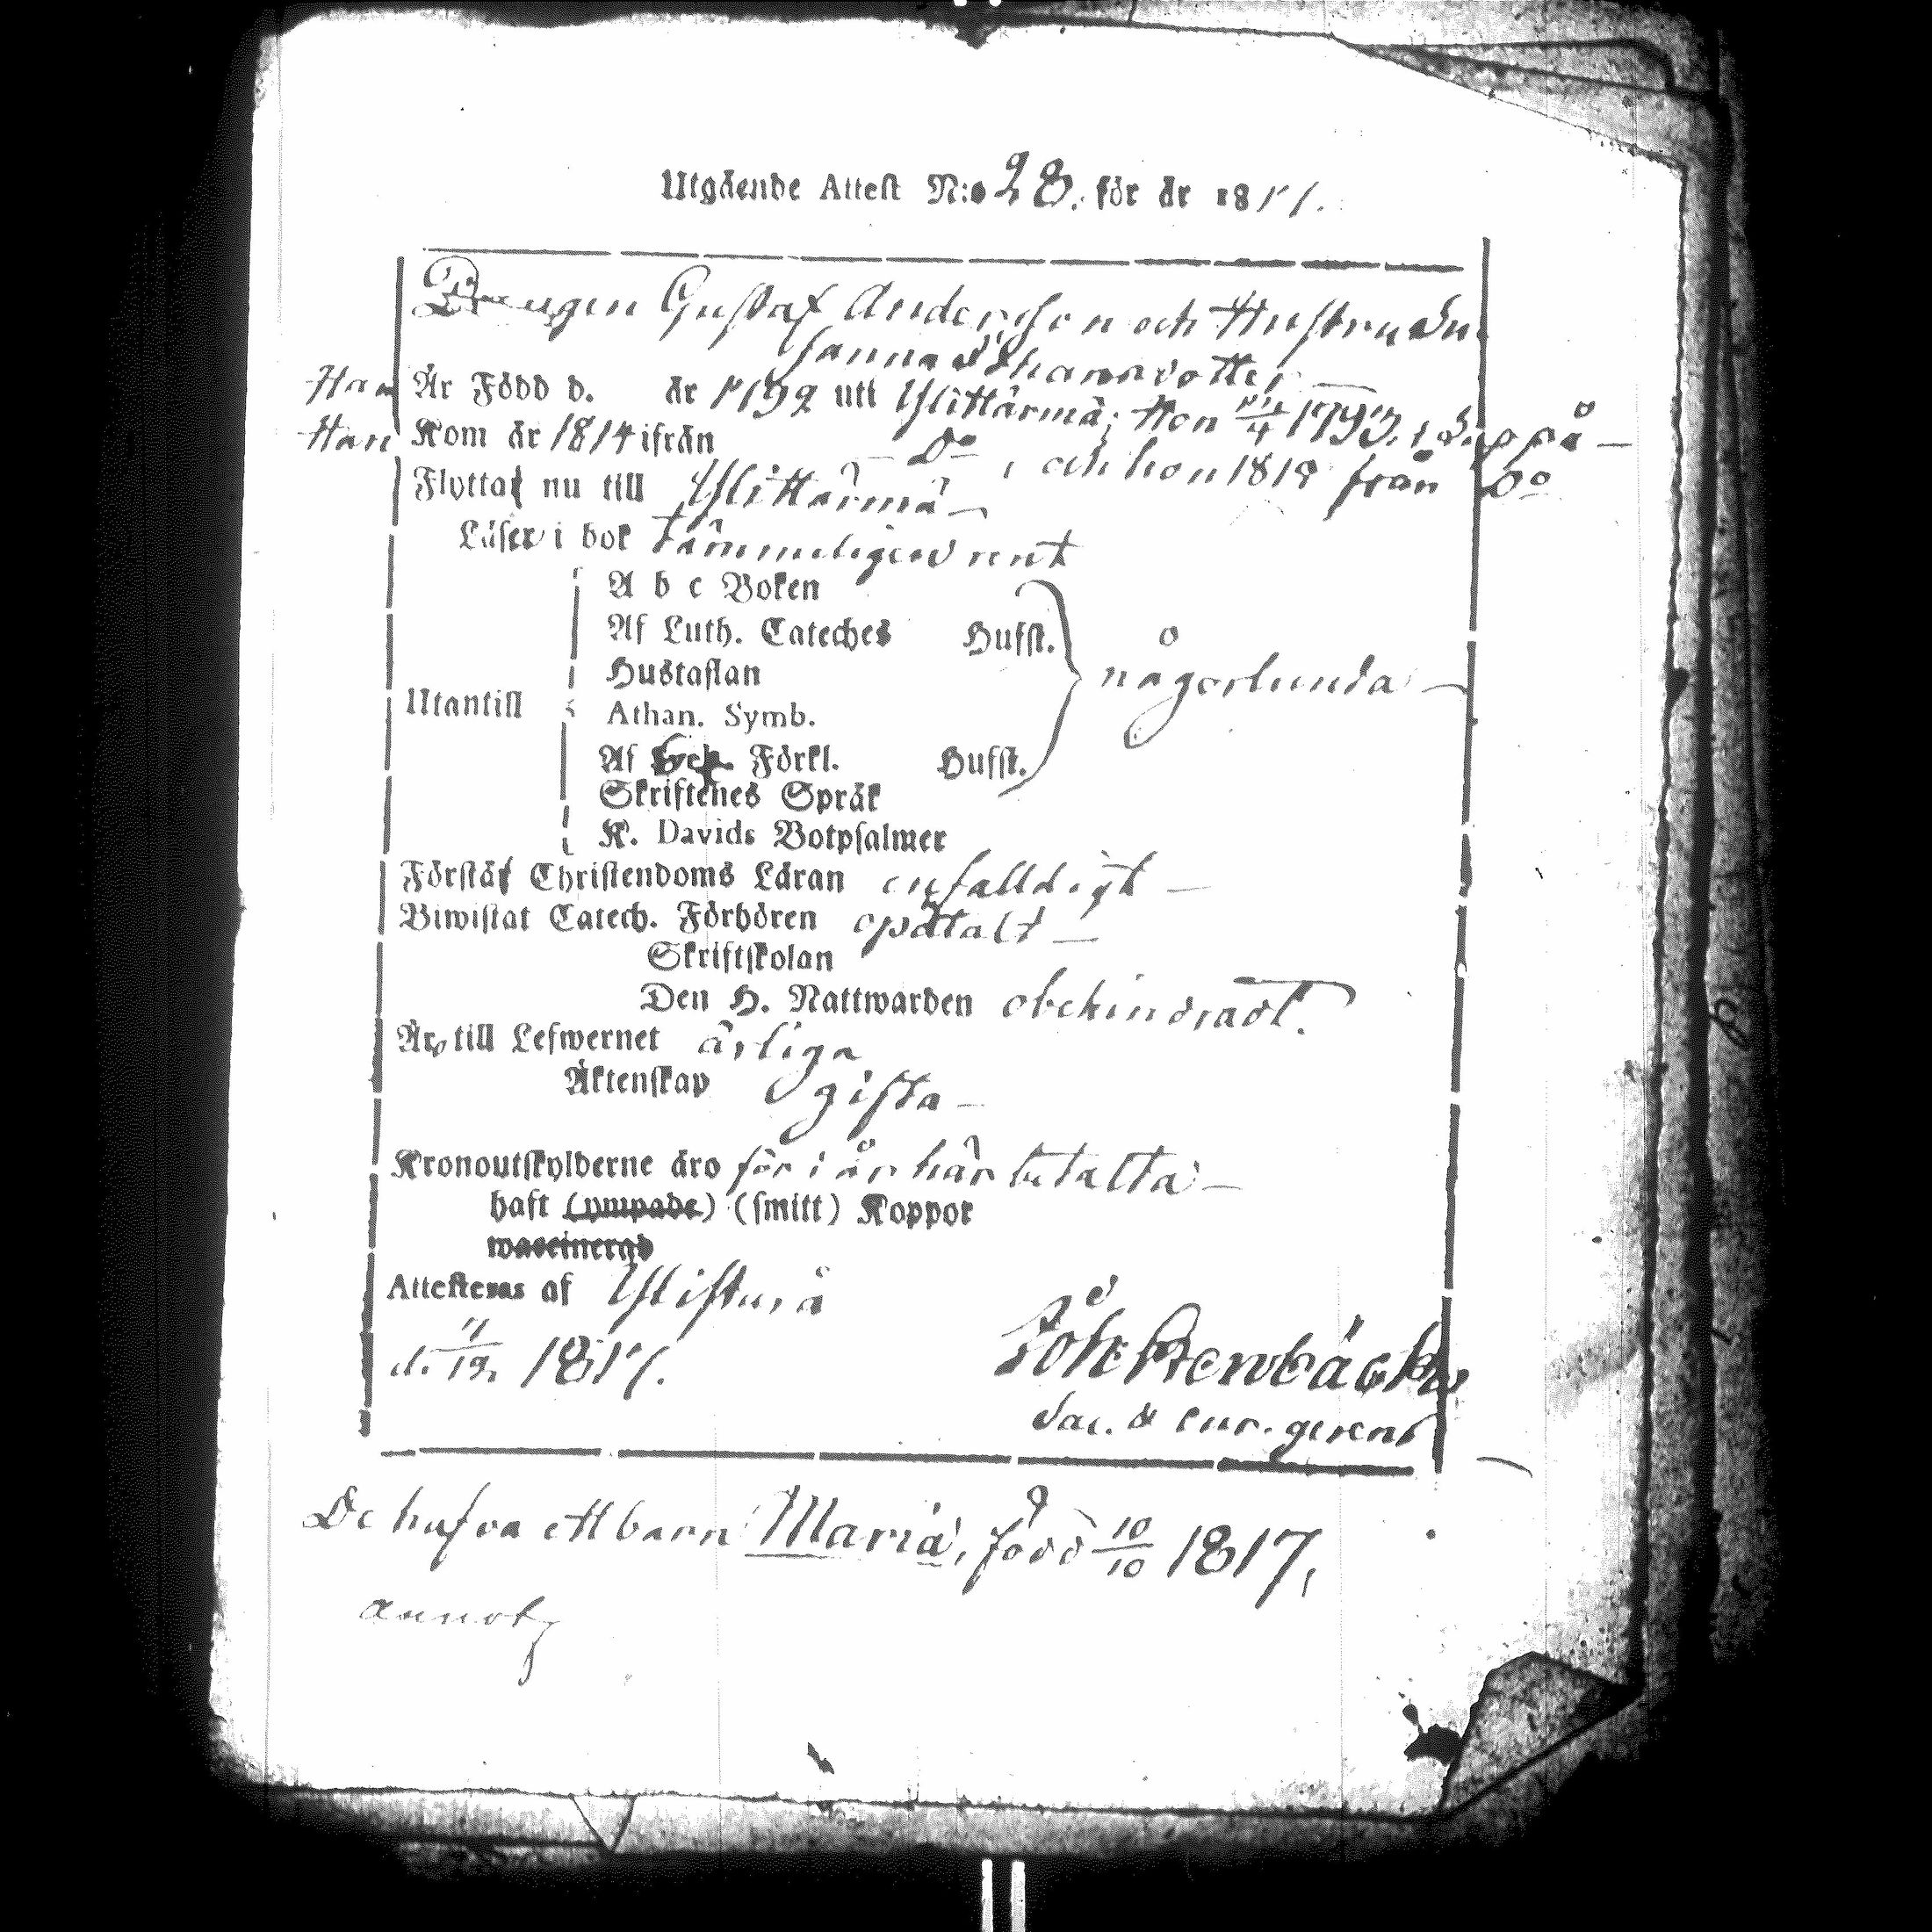 Utgående Attest N:o 28. för år 1817.
Drengen Gustaf Andersson och Hustru Su-
sanna Johannsdotter
Han Är Född d. år 1792 uti Ylistärmä; Hon 1793, i Lappå —
Han Kom år 1814 ifrån — Do , och hon 1818 från Do
Flyttat nu till Ylistärmä —
Läser i bok tämmeligen rent
A b c Boken
Af Luth. Cateches Hufst.
Hustaflan någorlunda —
Utantill
Athan. Symb.
Af Förkl. Hufst.
Skriftenes Språk
K. Davids Botpsalmer
Förstå Christendoms Läran enfalldigt —
Biwistat Catech. Förhören opåtalt —
Skriftskolan
Den H. Nattwarden obehindradt.
Äro till Lefwernet ärliga
Äktenskap gifta —
Kronoutskylderne äro för i år här betalta —
haft (ympade) (smitt) Koppor
waccinerad
Attesteras af Ylistaro
d. 11/12 1817.
Joh: Stenbäck
Sac. & cur. gerens
De hafva ett barn Maria, född 10/10 1817,
annot